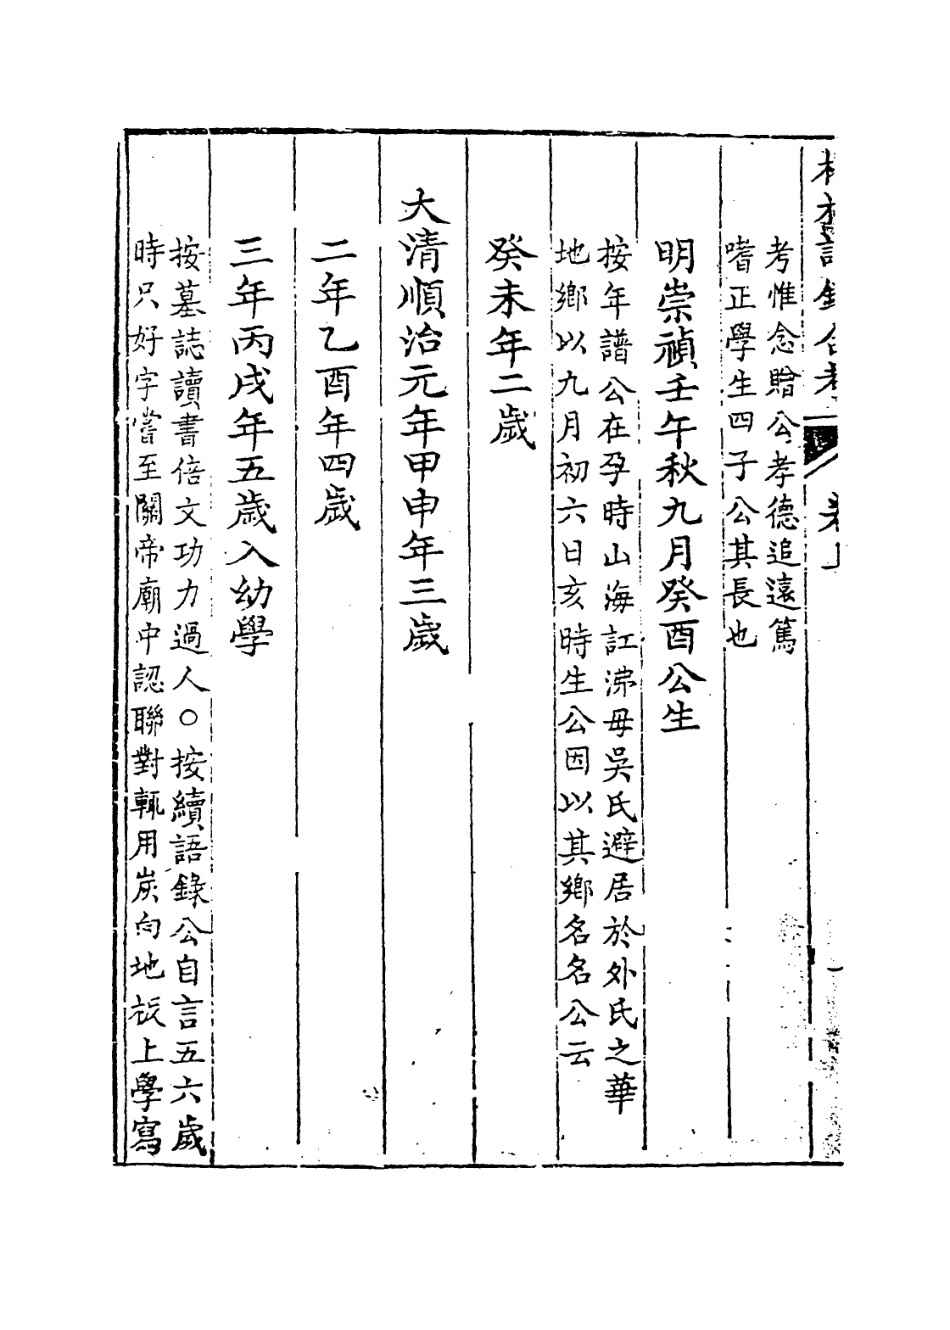 考惟念贈公孝德追遠篤
嗜正學生四子公其長也
明崇禎壬午秋九月癸酉公生
按年譜公在孕時山海訌沸毋吳氏避居於外氏之華
地鄉以九月初六日亥時生公因以其鄉名名公云
癸未年二歲
大清順治元年甲申年三歲
二年乙酉年四歲
三年丙戌年五歲入幼學
按墓誌讀書倍文功力過人○按續語錄公自言五六歲
時只好字嘗至關帝廟中認聯對輒用炭向地板上學寫